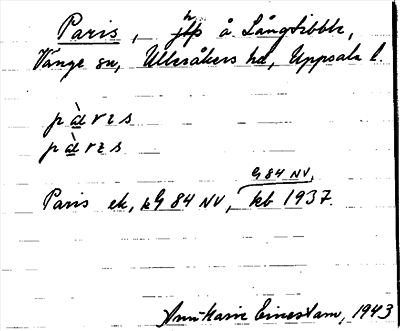 Paris, jtp å Långtibble,
Vänge sn, Ulleråkers hd, Uppsala l.
pàrɩs
pàrɩs
G 84 NV,
Paris ek, kG 84 NV, kb 1937.
Ann-Marie Einestam, 1943